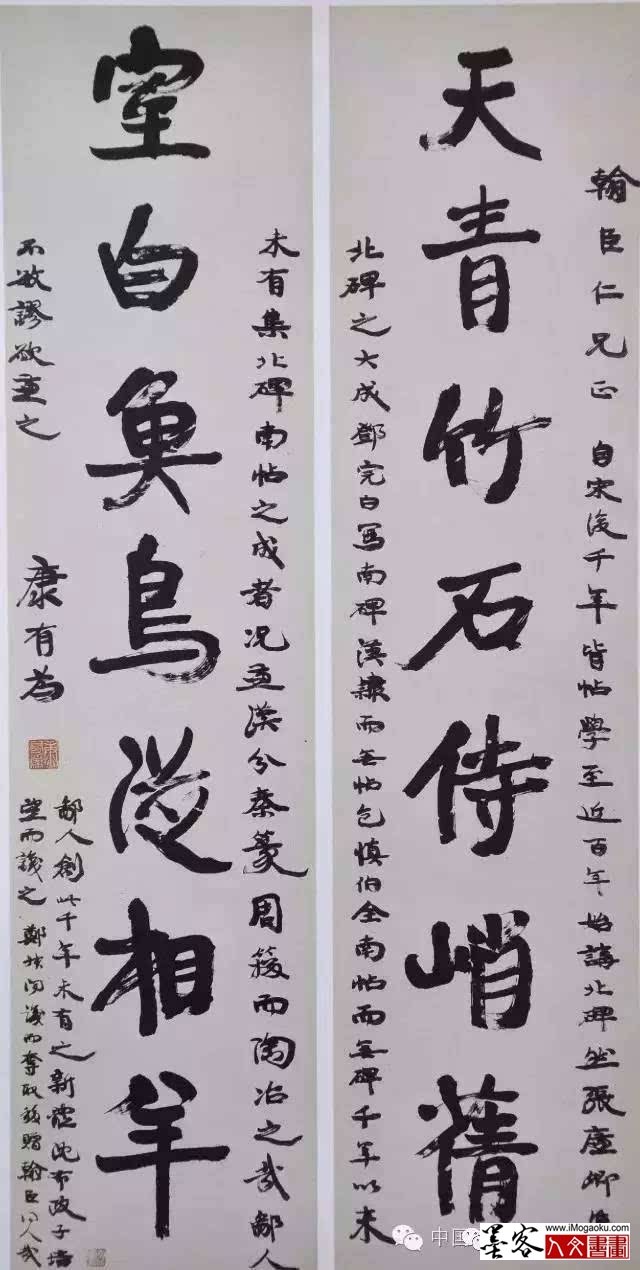 翰臣仁兄正 自宋後千年皆帖學至近百年始講北碑然張廉卿
天青竹石侍峭蒨
北碑之大成鄧完白寫南碑漢隸而無帖包慎伯全南帖而無碑千年以來
未有集北碑南帖之成者況兼漢分秦篆周籀而陶冶之哉鄙人
室白魚鳥從相羊
不敏謬欲兼之
康有為
鄙人創此千年未有之新體沈布政子培
望而識之 鄭 而奪取 贈翰臣
中国
墨客
www.iMogaoku.com
人文書畫